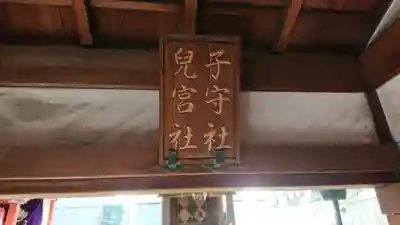 子守社
兒宮社